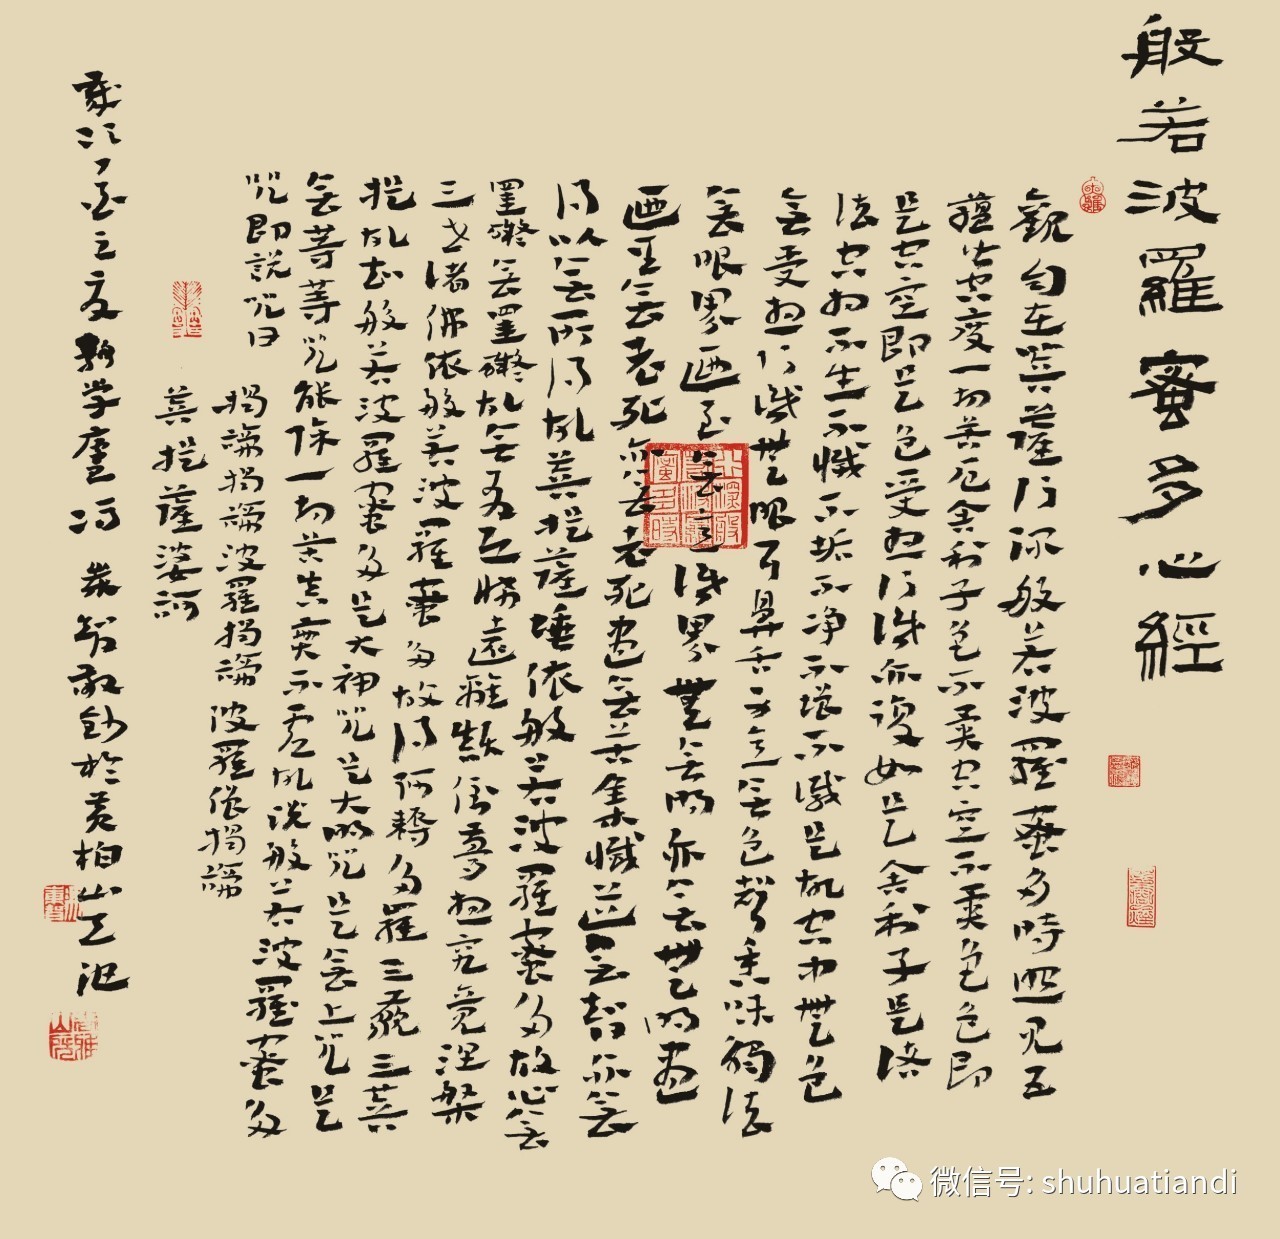 般若波羅蜜多心經
觀自在菩薩行深般若波羅蜜多時照見五
蘊皆空度一切苦厄舍利子色不異空空不異色色即
是空空即是色受想行識亦復如是舍利子是諸
法空相不生不滅不垢不净不增不減是故空中無色
無受想行識無眼耳鼻舌身意無色聲香味觸法
無眼界迺至無意識界無無明亦無無明盡
迺至無老死亦無老死盡無苦集滅道無智亦無
得以無所得故菩提薩埵依般若波羅蜜多故心無
罣礙無罣礙故無有恐怖遠離顛倒夢想究竟涅槃
三世諸佛依般若波羅蜜多故得阿耨多羅三藐三菩
提故知般若波羅蜜多是大神咒是大明咒是無上咒是
無等等咒能除一切苦真實不虛故説般若波羅蜜多
咒即說咒曰
揭諦揭諦波羅揭諦波羅僧揭諦
菩提薩婆訶
歲次丁酉之夏学廬馮敬鈔於黃柏山
微信号: shuhuatiandi